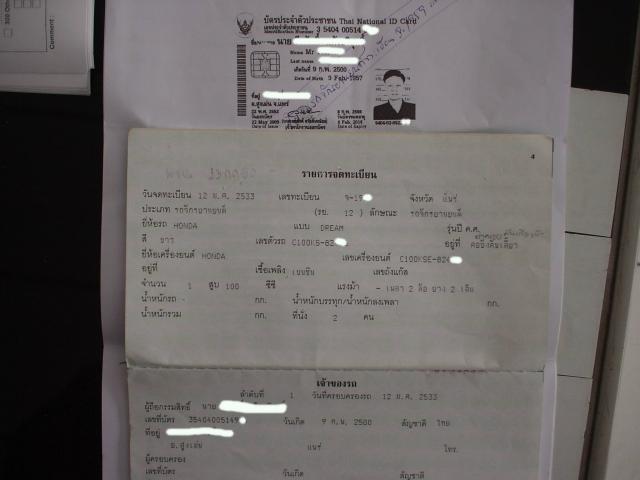 Comment :
บัตรประจำตัวประชาชน Thai National ID Card
เลขประจำตัวประชาชน
Identification Number 3 5404 00514
นาย
Name Mr
Last name
เกิดวันที่ 9 ก.พ. 2500
Date of Birth 9 Feb 1957
ที่อยู่
อ.สูงเม่น จ.แพร่
Date of Issue
Date of Expiry
4
รายการจดทะเบียน
วันจดทะเบียน 12 ม.ค. 2533 เลขทะเบียน จังหวัด แพร่
ประเภท รถจักรยานยนต์ (รย. 12) ลักษณะ รถจักรยานยนต์
ยี่ห้อรถ HONDA แบบ DREAM รุ่นปี ค.ศ.
สี ขาว เลขตัวรถ C100KS-82 อยู่ที่
ยี่ห้อเครื่องยนต์ HONDA เลขเครื่องยนต์ C100KSE-82
อยู่ที่ เชื้อเพลิง เบนซิน เลขถังแก๊ส
จำนวน 1 สูบ 100 ซีซี แรงม้า - เพลา 2 ล้อ ยาง 2 เส้น
น้ำหนักรถ กก. น้ำหนักบรรทุก/น้ำหนักลงเพลา กก.
น้ำหนักรวม กก. ที่นั่ง 2 คน
เจ้าของรถ
ลำดับที่ 1 วันที่ครอบครองรถ 12 ม.ค. 2533
ผู้ถือกรรมสิทธิ์ นาย
เลขที่บัตร 35404005149 วันเกิด 9 ก.พ. 2500 สัญชาติ ไทย
ที่อยู่
อ.สูงเม่น แพร่ โทร.
ผู้ครอบครอง
เลขที่บัตร วันเกิด สัญชาติ